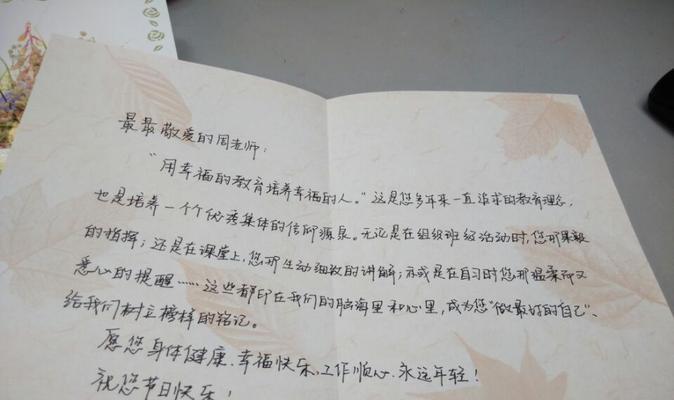 最最敬爱的周老师：
“用幸福的教育培养幸福的人。”这是您多年来一直追求的教育理念，
也是培养一个个优秀集体的信仰源泉。无论是在组织班级活动时，您那果毅
的指挥；还是在课堂上，您那生动细致的讲解；亦或是在自习时您那温柔而又
悉心的提醒……这些都印在我们的脑海里和心里，成为您“做最好的自己”、
给我们树立榜样的铭记。
愿您身体健康、幸福快乐、工作顺心、永远年轻！
祝您节日快乐！